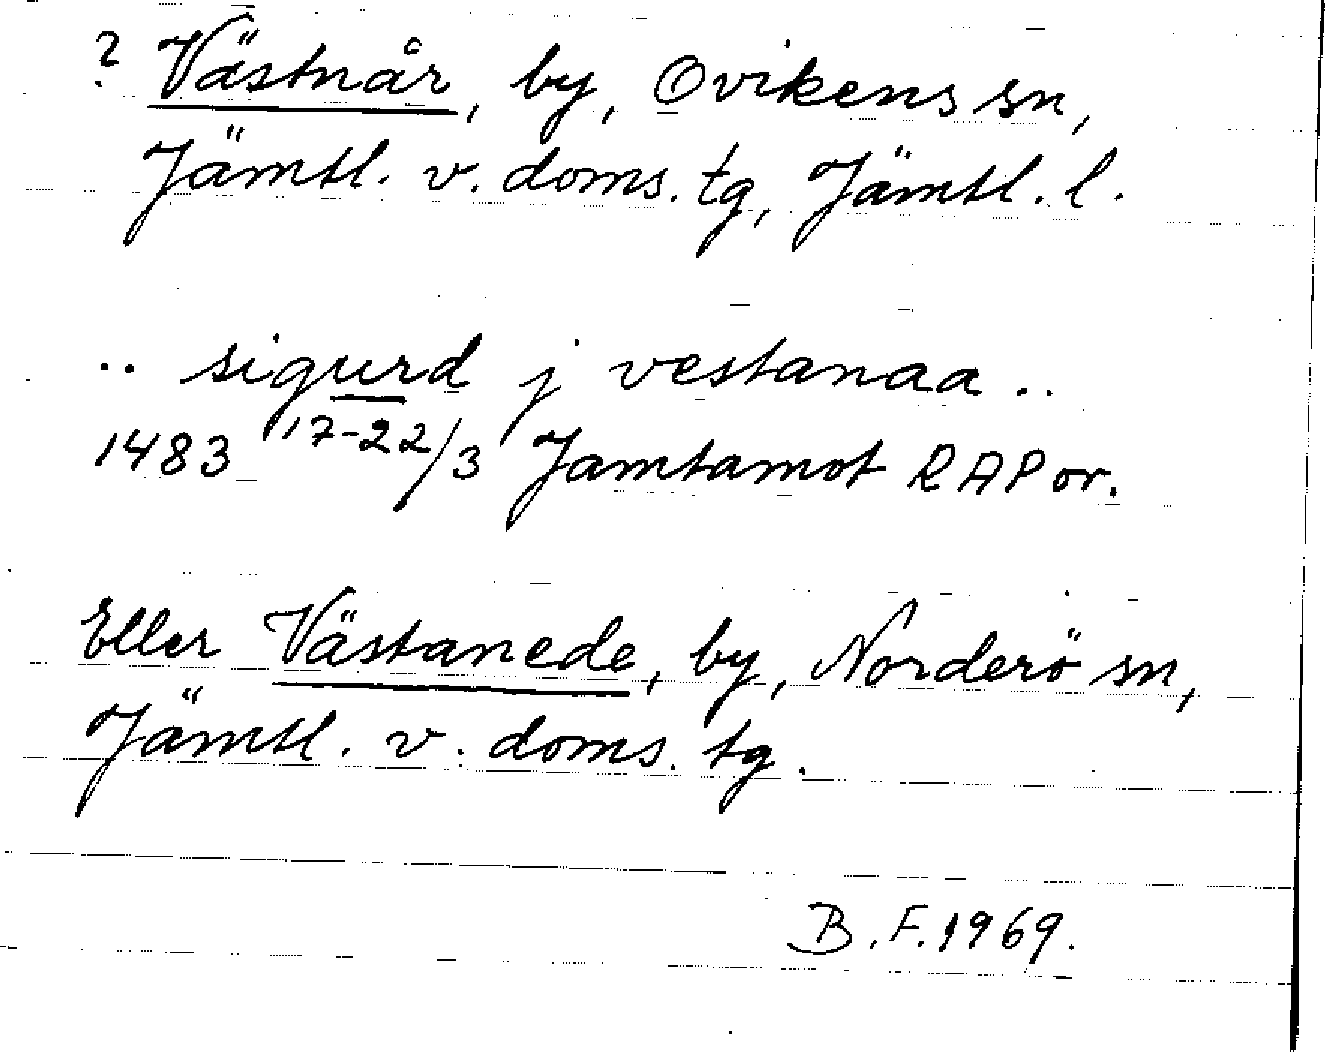 ? Västnår, by, Ovikens sn,
Jämtl. v. doms. tg, Jämtl. l.
.. sigurd j vestanaa ..
1483 17-22/3 Jamtamot RAP or.
Eller Västanede, by, Norderö sn,
Jämtl. v. doms. tg.
B.F. 1969.